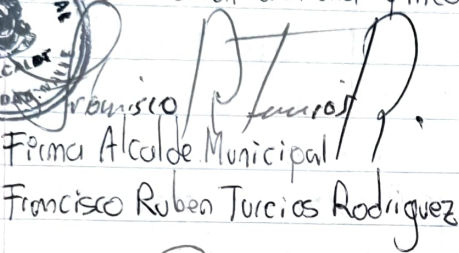 Francisco R. Turcios R.
Firma Alcalde Municipal
Francisco Ruben Turcios Rodriguez